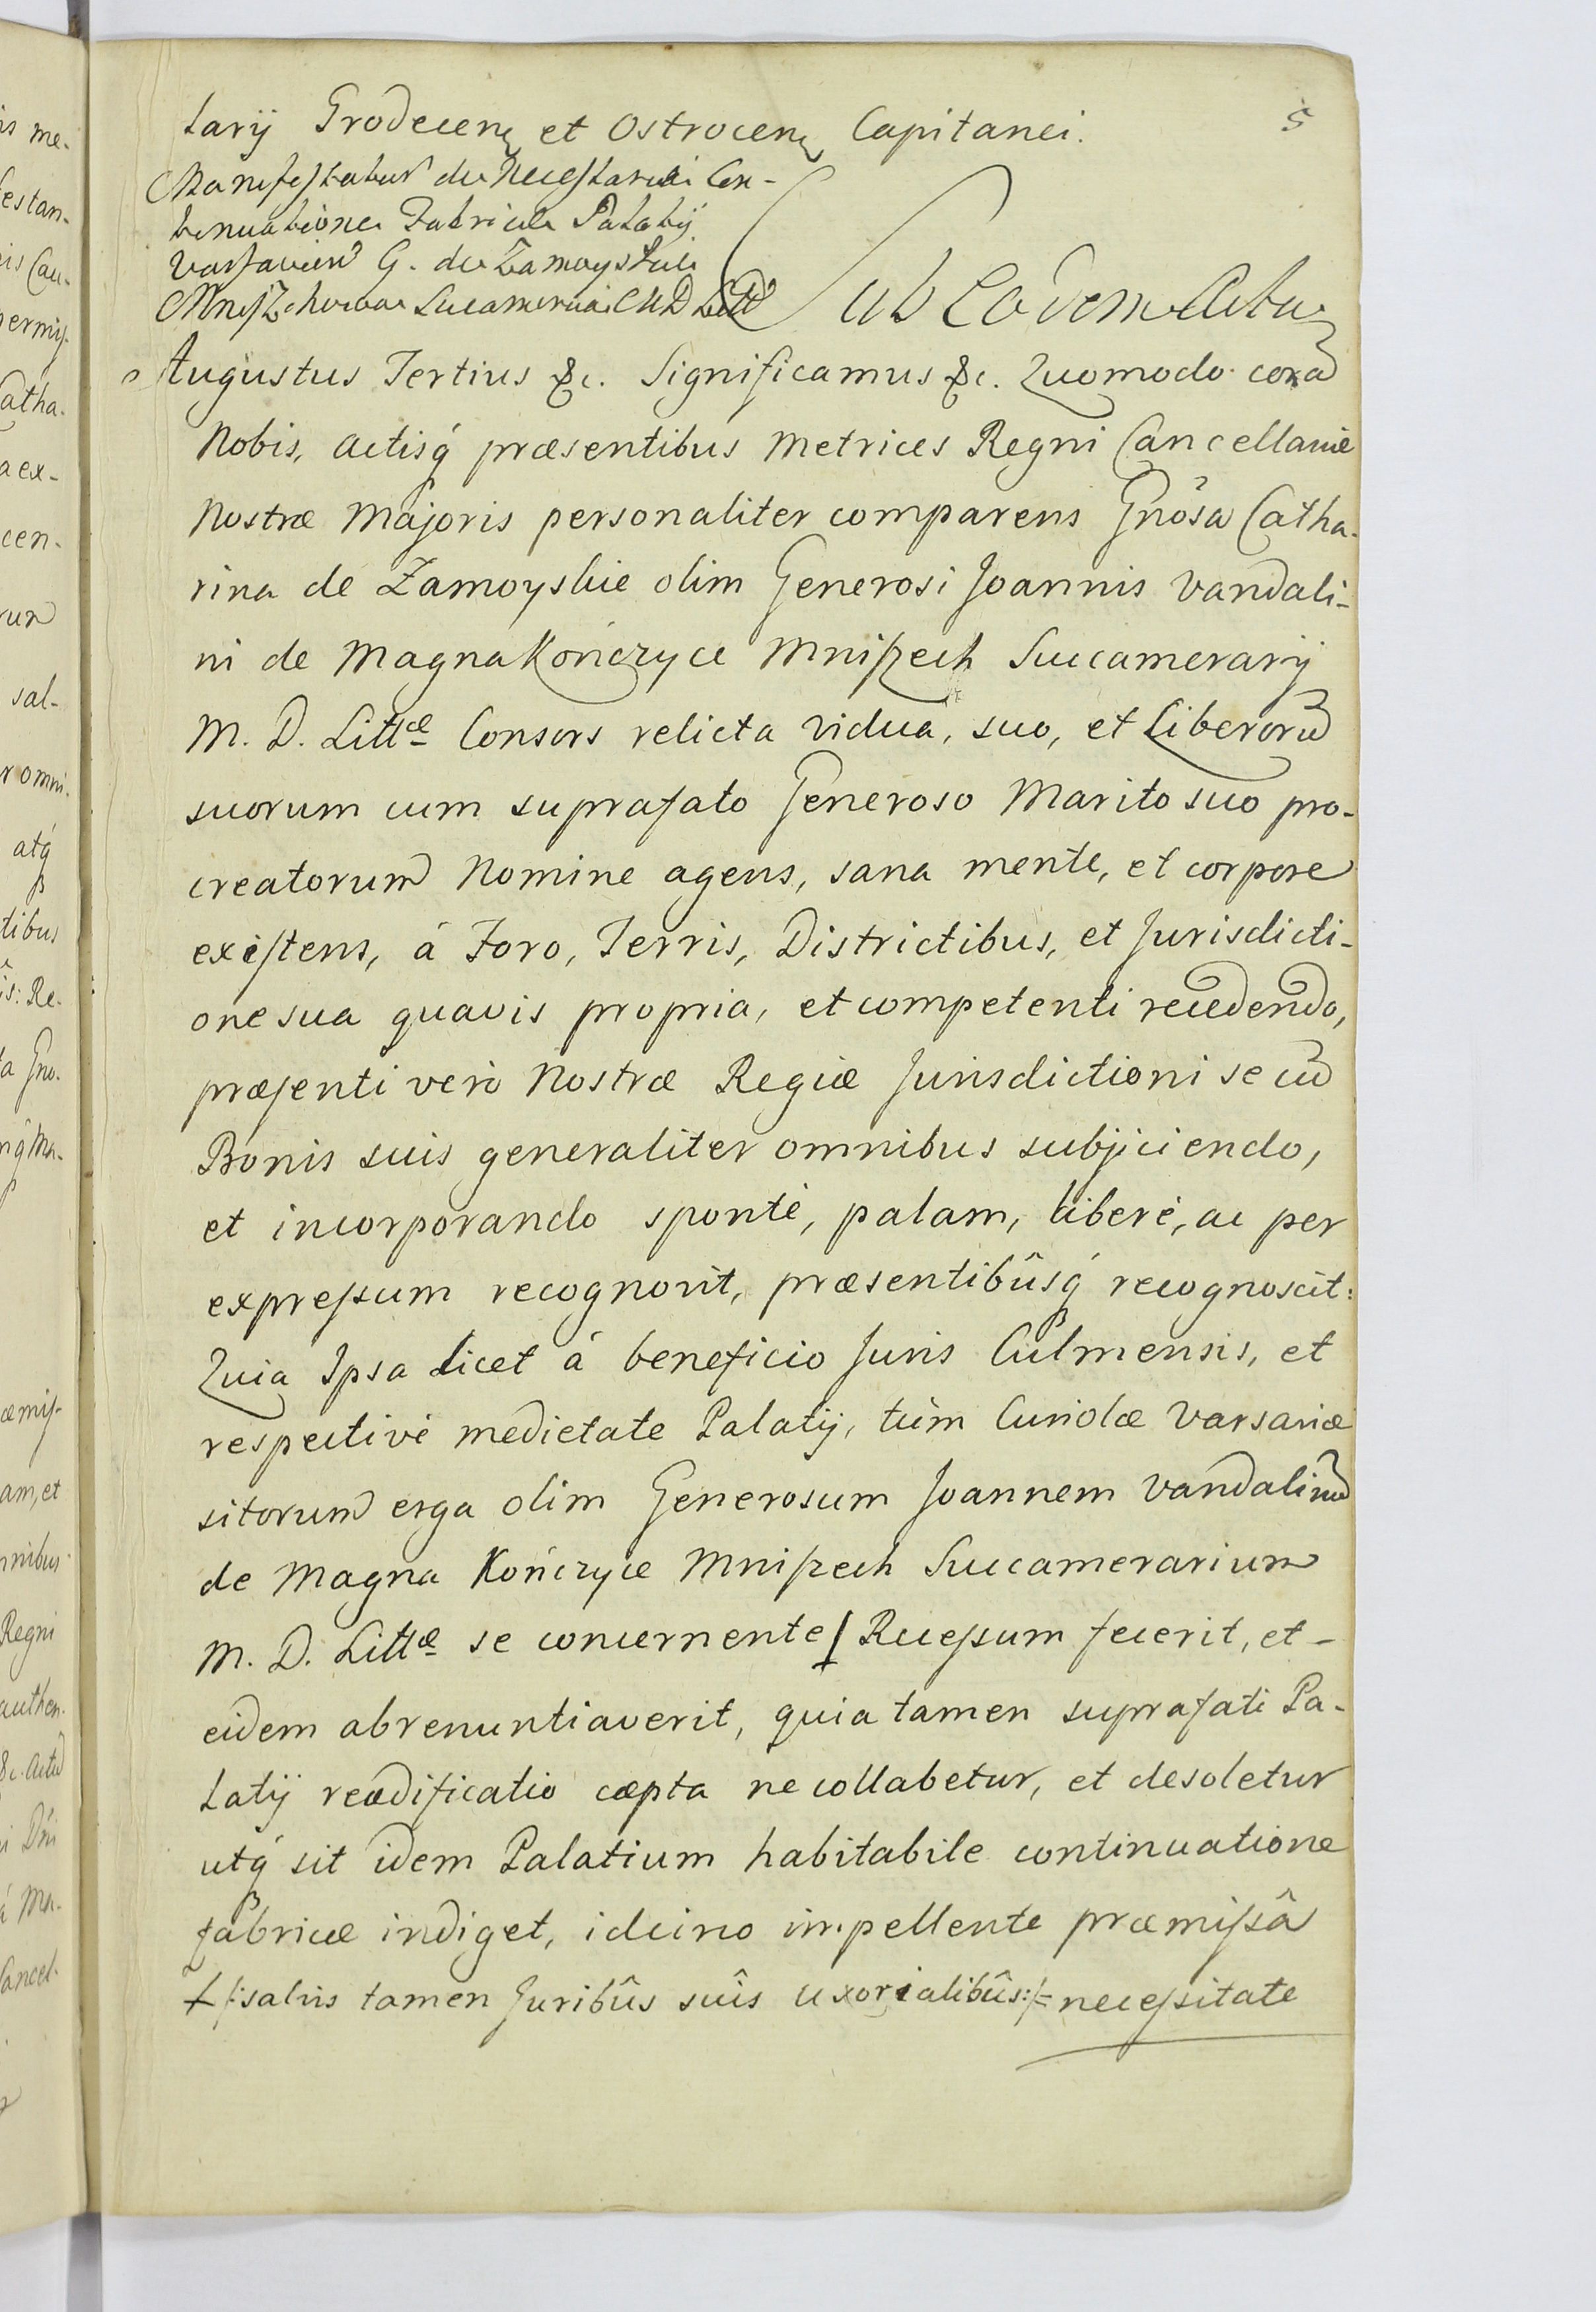 5
larij Grodecen et Ostrocen Capitanei.
Manifestatur de Necessaria Con-
tinuatione Fabricæ Palatij
Varsavien G. de Zamoyskie
Mniszchowa Succameraria M D Litt
Sub Eodem Actu
Augustus Tertius &c. Significamus &c. Quomodo corã
Nobis, actisq́ præsentibus Metrices Regni Cancellariæ
Nostræ Majoris personaliter comparens Gnôsa Catha-
rina de Zamoyskie olim Generosi Joannis Vandali-
ni de Magna Kończyce Mniszech Succamerarij
M. D. Littæ Consors relicta vidua, suo, et Liberorũ
suorum cum suprafato Generoso Marito suo pro-
creatorum Nomine agens, sana mente, et corpore
existens, á Foro, Terris, Districtibus, et Jurisdicti-
one sua quavis propria, et competenti recedendo,
præsenti verò Nostræ Regiæ Jurisdictioni se cũ
Bonis suis generaliter omnibus subjiciendo,
et incorporando sponté, palam, liberé, ac per
expressum recognovit, præsentibûsq́ recognoscit:
Quia Ipsa licet á beneficio Juris Culmensis, et
respectivé medietate Palatij, tùm Curiolæ Varsaviæ
sitorum erga olim Generosum Joannem Vandalinũ
de Magna Kończyce Mniszech Succamerarium
M. D. Littæ se concernente ƚ Recessum fecerit, et -
eidem abrenuntiaverit, quia tamen suprafati Pa-
latij reædificatio cæpta ne collabetur, et desoletur
utq́ sit idem Palatium habitabile continuatione
fabricæ indiget, idcirco impellente præmissâ
ƚ /:salvis tamen Juribûs suîs uxorialibûs:/= necessitate
is me-
festan-
is Cau-
permis-
Catha-
a ex-
cen-
rum
sal-
r omni-
atq́
tibus
is: Re-
ta Gno-
nq́ Mn-
æmis-
am, et
mnibus
Regni
authen-
&c. Actũ
i Dñi
á Mn-
Cancel-